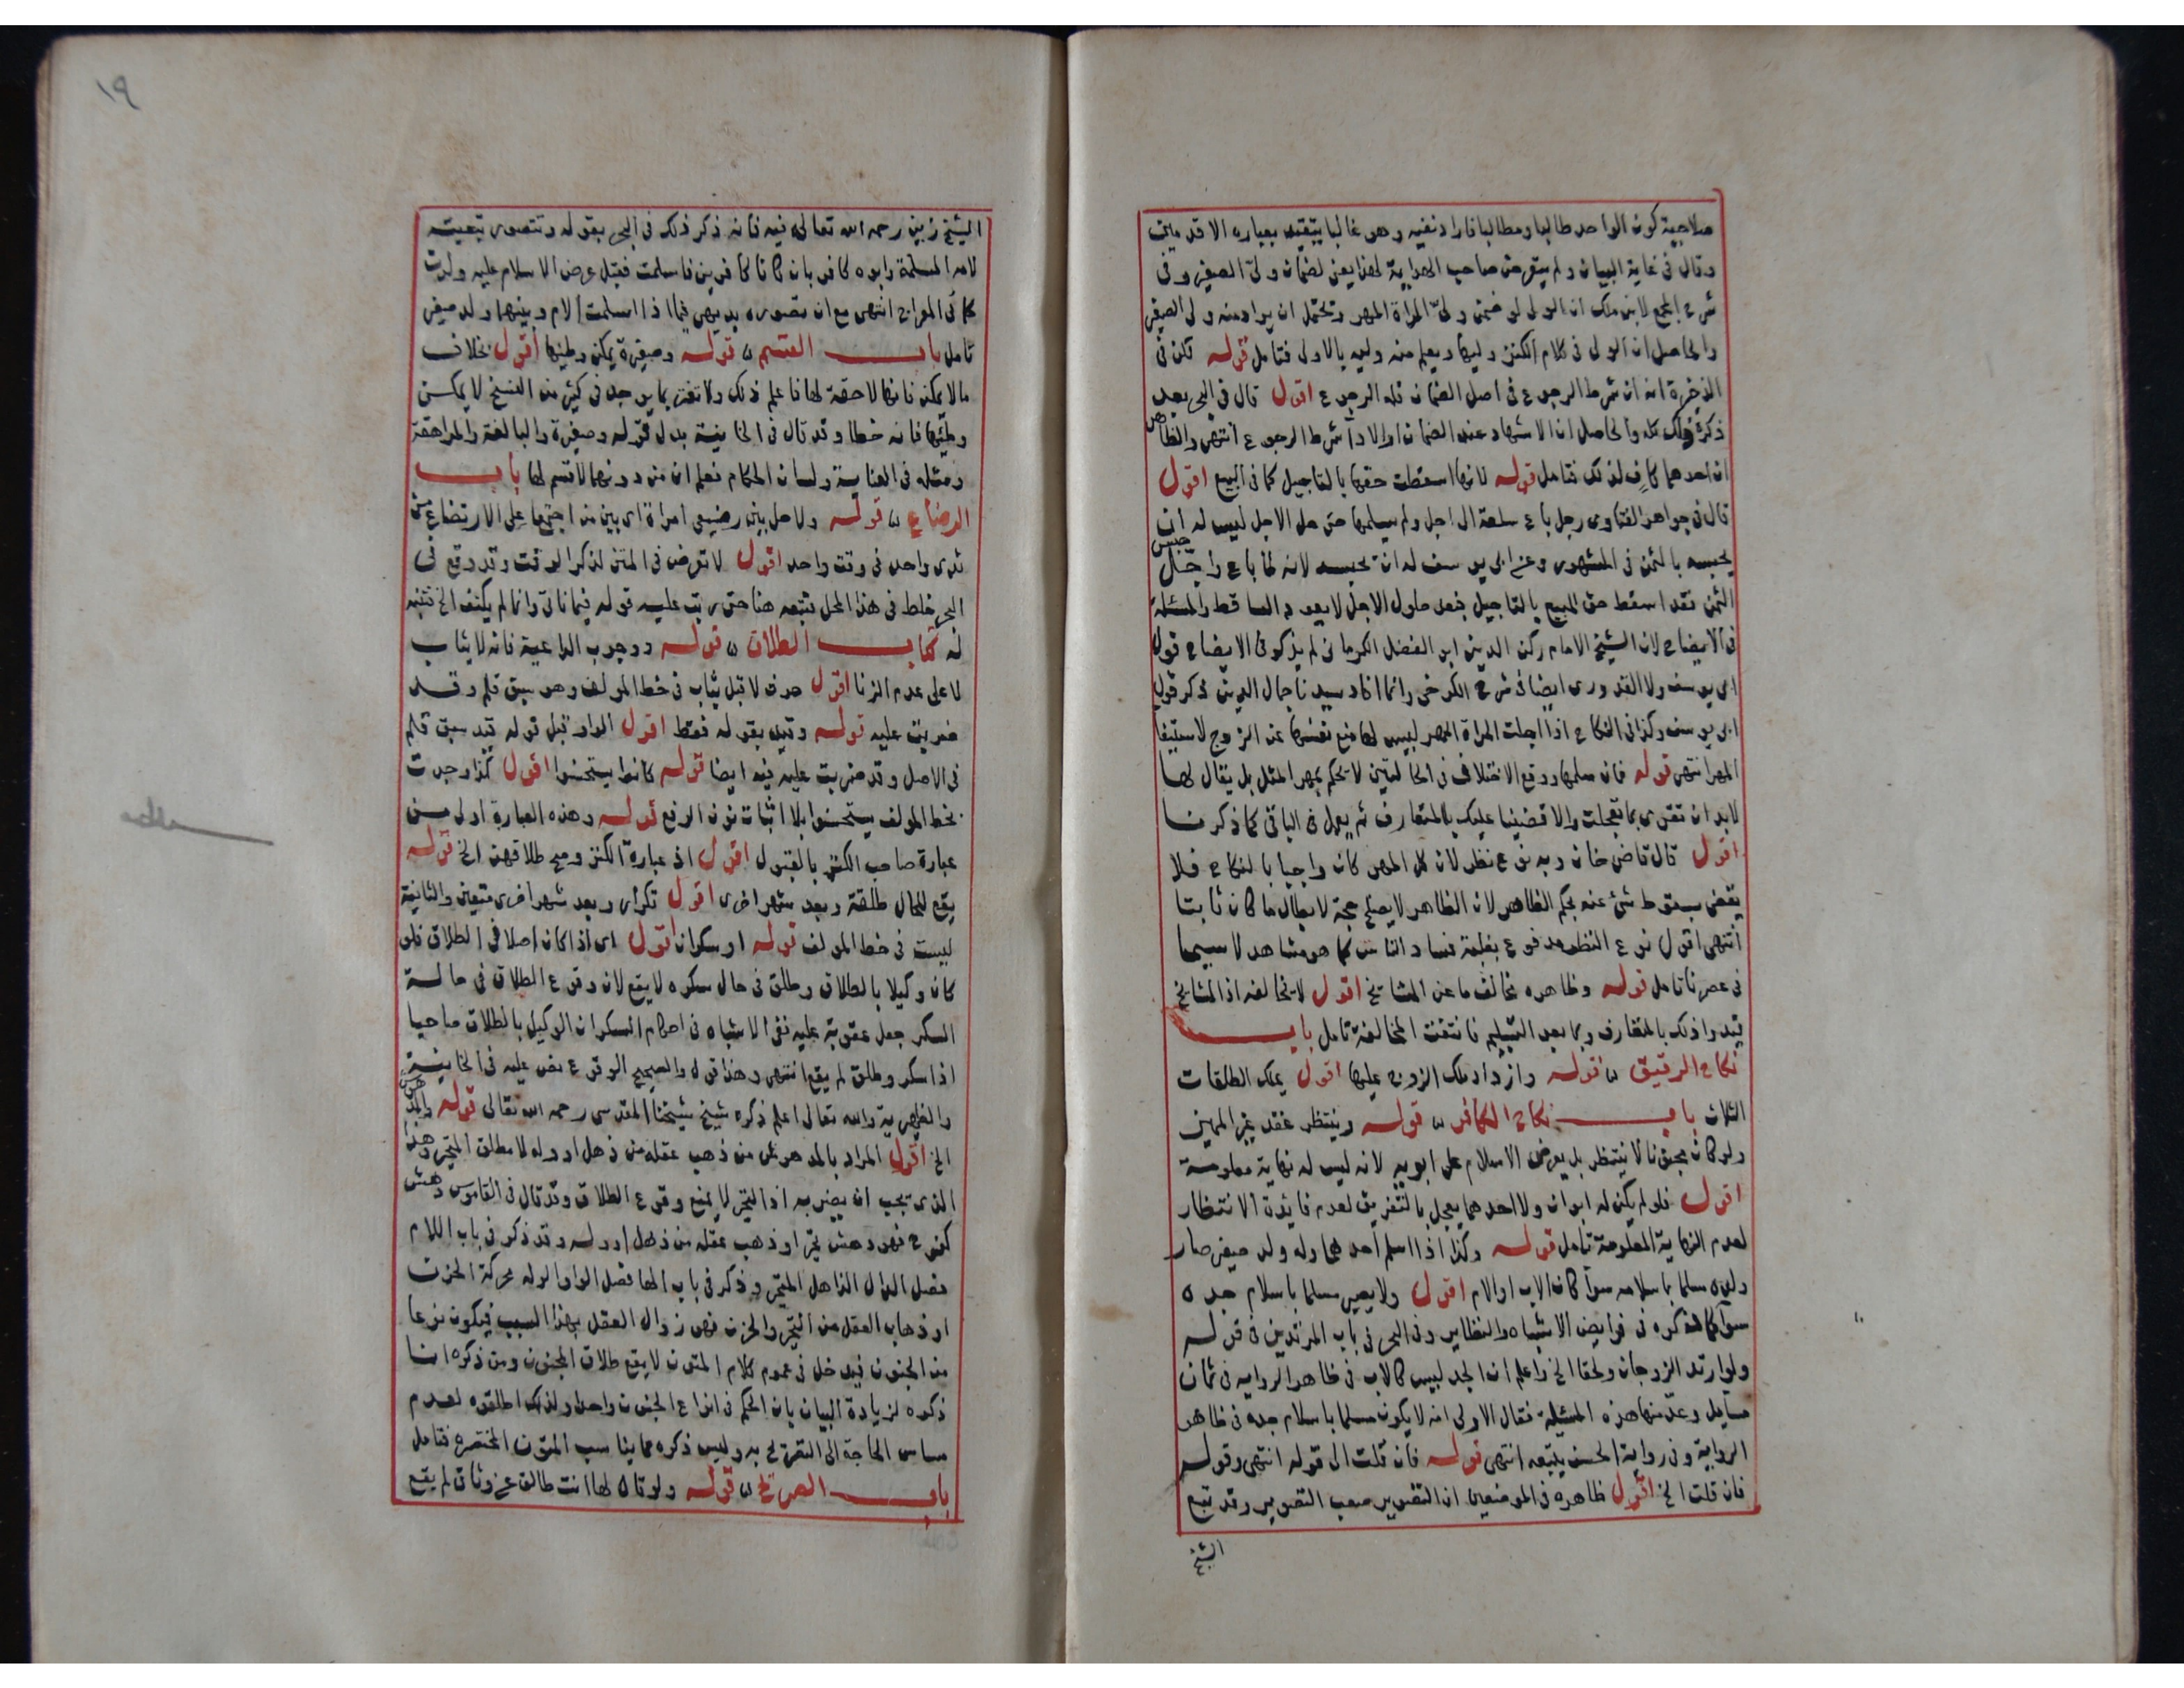 صلاحية كون الواحد طالبا ومطالبا فاراد نفيه وهو غالبا يتقيد بعبارة الاقدمين
وقال في غاية البيان ولم يتعرض صاحب الهداية لهذا يعني لضمان ولي الصغير وفي
شرح المجمع لابن ملك ان الولي لو ضمن ولي المراة المهر ويحتمل ان يراد منه ولي الصغير
والحاصل ان الولي في كلام الكنز وليها ويعلم منه وليه بالاولى فتامل قوله لكن في
الذخيرة انه ان شرط الرجوع في اصل الضمان فله الرجوع اقول قال في البحر بعد
ذكره ذلك كله والحاصل ان الاشهاد عند الضمان او الاداء شرط الرجوع انتهى والظاهر
ان احدهما كاف لذلك فتامل قوله لانها اسقطت حقها بالتاجيل كما في البيع اقول
قال في جواهر الفتاوى رجل باع سلعة الى اجل ولم يسلمها حتى حل الاجل ليس له ان
يحبسه بالثمن في المشهور وعن ابي يوسف له ان يحبسه لانه لما باع واجل
الثمن فقد اسقط حق المبيع بالتاجيل فبعد حلول الاجل لا يعود الساقط والمسئلة
في الايضاح لان الشيخ الامام ركن الدين ابو الفضل الكرماني لم يذكر في الايضاح قول
ابي يوسف ولا القدوري ايضا في شرح الكرخي وانما افاد سيدنا جمال الدين ذكر قول
ابي يوسف وكذا في النكاح اذا اجلت المراة المهر ليس لها منع نفسها عن الزوج لاستيفا
المهر انتهى قوله فان سلمها ووقع الاختلاف في الحالتين لا يحكم بمهر المثل بل يقال لها
لا بد ان تقري بما تعجلت والا قضينا عليك بالمتعارف ثم يعمل في الباقي كما ذكرنا
اقول قال قاضي خان وبه نوع نظر لان كل المهر كان واجبا بالنكاح فلا
يقضى بسقوط شئ عنه بحكم الظاهر لان الظاهر لا يصلح حجة لابطال ما كان ثابتا
انتهى اقول نوع النظر مدفوع بغلبة فساد الناس كما هو مشاهد لا سيما
في عصرنا تامل قوله وظاهره يخالف ما عن المشايخ اقول لا يخالفه اذ المشايخ
قيدوا ذلك بالمتعارف وبما بعد التسليم فانتفت المخالفة تامل باب
نكاح الرقيق قوله وازداد ملك الزوج عليها اقول يملك الطلقات
الثلاث باب نكاح الكافر قوله وينتظر عقد غير المميز
ولو كان مجنونا لا ينتظر بل يعرض الاسلام على ابويه لانه ليس له نهاية معلومة
اقول فلو لم يكن له ابوان ولا احدهما يعجل بالتفريق لعدم فايدة الانتظار
لعدم النهاية المعلومة تامل قوله وكذا اذا اسلم احدهما وله ولد صغير صار
ولده مسلما باسلامه سوآ كان الاب او الام اقول ولا يصير مسلما باسلام جده
سوآ كما ذكره في فرايض الاشباه والنظاير وفي البحر في باب المرتدين في قوله
ولو ارتد الزوجان ولحقا الخ واعلم ان الجد ليس كالاب في ظاهر الرواية في ثمان
مسايل وعد منها هذه المسئلة فقال الاولى انه لا يكون مسلما باسلام جده في ظاهر
الرواية وفي رواية الحسن يتبعه انتهى قوله فان قلت الى قوله انتهى وقوله
فان قلت الخ اقول ظاهره في الموضعين ان التصوير صعب التصوير وقد تبع
الشيخ
١٩
الشيخ زين رحمه الله تعالى فيه فانه ذكر ذلك في البحر بقوله وتتصور تبعيته
لامه المسلمة وابوه كافر بان كانا كافرين فاسلمت فقبل عرض الاسلام عليه ولدت
كما في المعراج انتهى مع ان تصوره بديهي فيما اذا اسلمت الام وبينهما ولد صغير
تامل باب القسم قوله وصغيرة يمكن وطئها اقول بخلاف
ما لا يمكن فانها لا حقة لها فاعلم ذلك ولا تغتر بما يوجد في كثير من النسخ لا يمكن
وطئها فانه خطا وقد قال في الخانية بدل قوله وصغيرة والبالغة والمراهقة
ومثله في العناية ولسان الحكام فعلم ان من دونهما لا قسم لها باب
الرضاع قوله ولا حل بين رضيعي امراة اي بين من اجتمعا على الارتضاع من
ثدي واحد في وقت واحد اقول لا تعرض في المتن لذكر الوقت وقد وقع في
البحر خلط في هذا المحل فتبعه هنا حتى رتب عليه قوله فيما ناتي وانما لم يكتف الخ فتنبه
له كتاب الطلاق قوله ووجوب الداعية فانه لا يثاب
لا على عدم الزنا اقول حرف لا قبل يثاب في خط المولف وهو سبق قلم وقد
ضربت عليه قوله وقيد بقوله فقط اقول الواو قبل قوله قيد سبق قلم
في الاصل وقد ضربت عليه فيه ايضا قوله كانوا يستحسنوا اقول كذا وجدت
بخط المولف يستحسنوا بلا اثبات نون الرفع قوله وهذه العبارة اولى من
عبارة صاحب الكنز بالقبول اقول اذ عبارة الكنز وصح طلاقهن الخ قوله
يقع للحال طلقة وبعد شهر اخرى اقول تكرار وبعد شهر اخرى متعين والثانية
ليست في خط المولف قوله او سكران اقول اي اذا كان اصلا في الطلاق فلو
كان وكيلا بالطلاق وطلق في حال سكره لا يقع لان وقوع الطلاق في حالة
السكر جعل عقوبة عليه ففي الاشباه في احكام السكران الوكيل بالطلاق صاحيا
اذا سكر وطلق لم يقع انتهى وهذا قول والصحيح الوقوع نص عليه في الخانية
والظهيرية والله تعالى اعلم ذكره شيخ شيخنا المقدسي رحمه الله تعالى قوله والمدهوش
الخ اقول المراد بالمدهوش من ذهب عقله من ذهل او وله لا مطلق المتحير وهذا
الذي يجب ان يفسر به اذ التحير لا يمنع وقوع الطلاق وقد قال في القاموس دهش
كفرح فهو دهش تحير او ذهب عقله من ذهل او وله وقد ذكر في باب اللام
فصل الدال الذاهل المتحير وذكر في باب الها فصل الواو الوله محركة الحزن
او ذهاب العقل من التحير والحزن فهو زوال العقل بهذا السبب فيكون نوعا
من الجنون فيدخل في عموم كلام المتون لا يقع طلاق المجنون ومن ذكره انما
ذكره لزيادة البيان بان الحكم في انواع الجنون واحد ولذلك اطلقوه لعدم
مساس الحاجة الى التصريح به وليس ذكره مما يناسب المتون المختصره فتامل
باب الصريح قوله ولو قال لها انت طالق عن وثاق لم يقع
مطلب